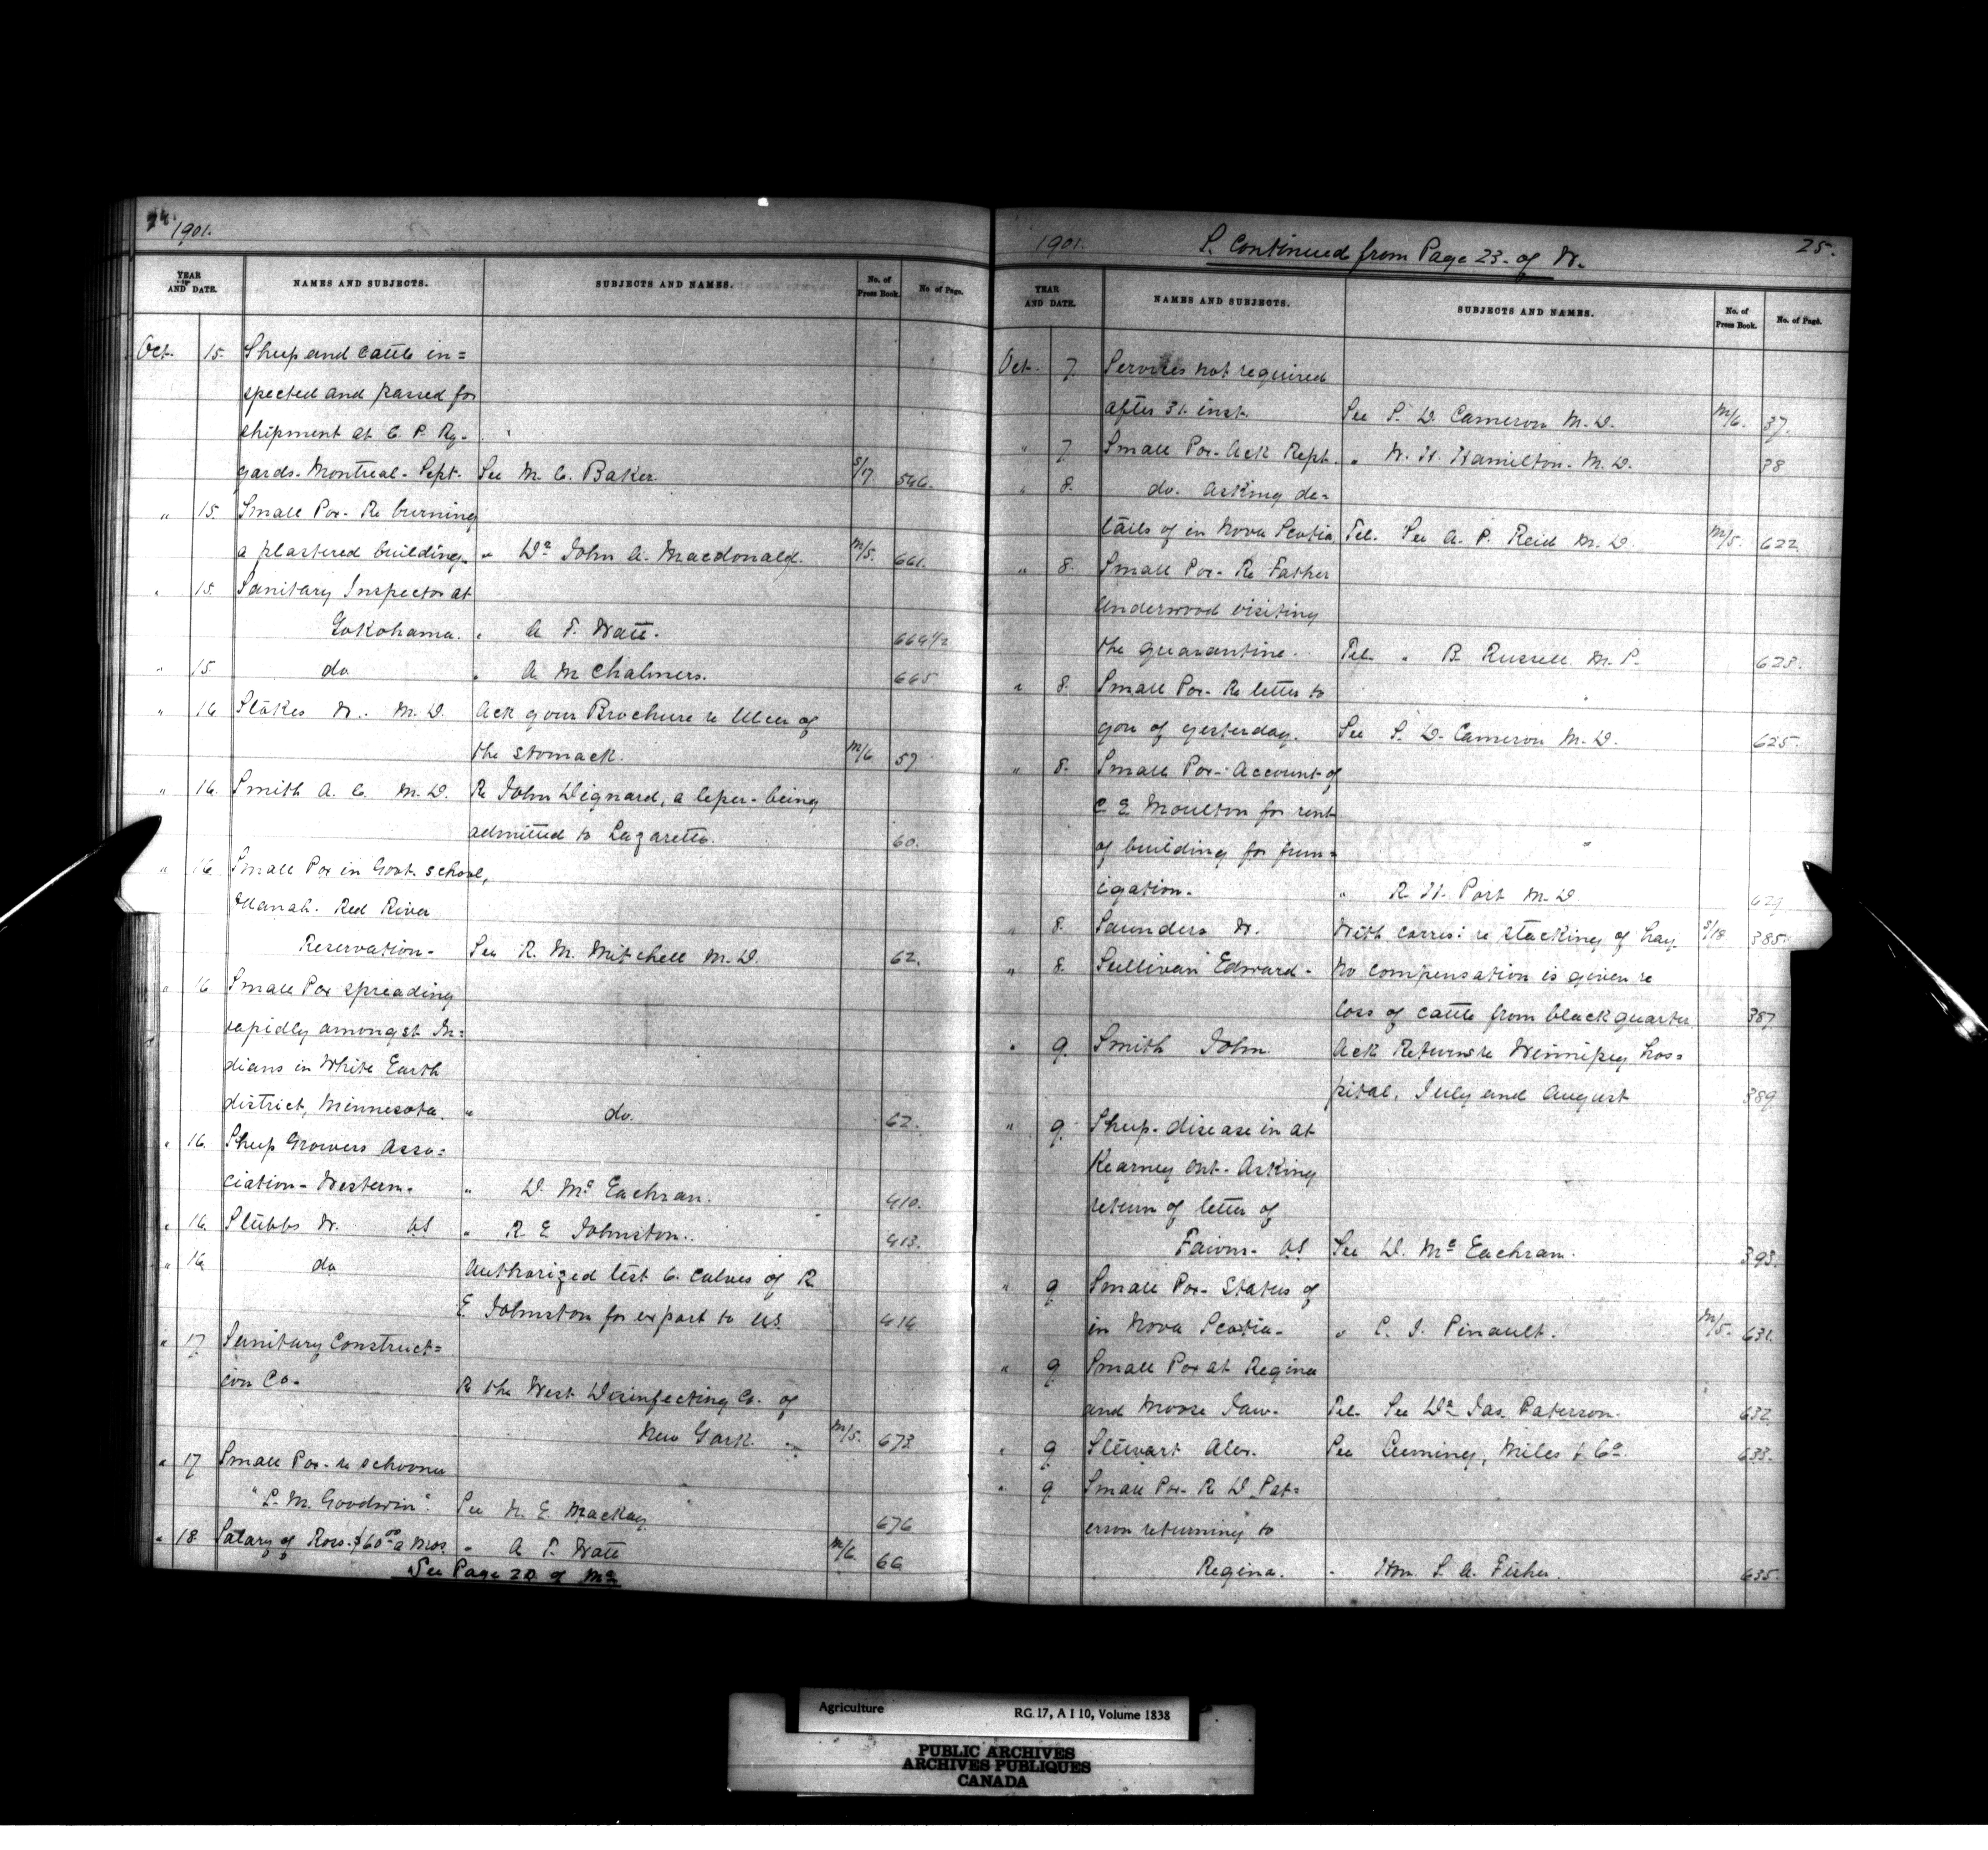 24. 1901.
YEAR AND DATE. NAMES AND SUBJECTS. SUBJECTS AND NAMES. No. of Press Book. No. of Page.
Oct. 15. Sheep and Cattle in=
spected and passed for
shipment at C. P. Ry-
yards- Montreal- Sept- See M. C. Baker. S/17 546.
" 15. Small Pox- Re burning
a plastered building- " Dr John A. Macdonald. M/5. 661.
" 15. Sanitary Inspector at
Yokohama. " A. T. Watt. 664 1/2
" 15 do " A. M Chalmers. 665
" 16 Stokes W. M. D. Ack your Brochure re Ulcer of
the stomack. M/6 59.
" 16. Smith A. C. M. D. Re John Dignard, a leper- being
admitted to Lazaretto. 60.
" 16 Small Pox in Govt. school,
Red River
Reservation- See R. M. Mitchell M. D. 62.
" 16 Small Pox spreading
rapidly amongst In=
dians in White Earth
district, Minnesota. " do. 62.
" 16. Sheep Growers Asso=
ciation- Western- " D. Mc Eachran. 410.
" 16 Stubbs W. VS " R. E Johnston.. 413.
" 16 do Authorized test 6. Calves of R
E Johnston for export to US. 414
" 17 Sanitary Construct=
ion Co- Re the West Disinfecting Co. of
New York. M/5. 673
" 17 Small Pox- re schooner
"L. M. Goodwin". See N. E. Mackay 676
" 18 Salary of Ross- $60.00 a Mos. " A T. Watt M/6. 66
See Page 20 of Mc
1901. S. Continued from Page 23- of W. 25.
YEAR AND DATE. NAMES AND SUBJECTS. SUBJECTS AND NAMES. No. of Press Book. No. of Page.
Oct. 7. Services not required
after 31. inst. See S. D. Cameron M. D. M/6. 37.
" 7. Small Pox- Ack Rept. " W. H. Hamilton- M. D. 38
" 8. do. Asking de=
tails of in Nova Scotia Tel. See A. P. Reid M. D. M/5. 622
" 8. Small Pox- Re Father
Underwood visiting
the quarantine. Tel. " B. Russell M. P. 623.
" 8. Small Pox- Re letter to
you of yesterday. See S. D. Cameron M. D. 625.
" 8. Small Pox-: Account of
C E Moulton for rent
of building for fum=
igation- " R. H. Port M. D 629
" 8. Saunders W. With corres: re stacking of hay. S/18 385.
" 8. Sullivan Edward- No compensation is given re
loss of cattle from blackquarter 387
" 9. Smith John. Ack Returns re Winnipeg hos=
pital, July and August 389
" 9. Sheep- disease in at
Kearney Ont- Asking
return of letter of
VS See D. Mc Eachran. 393.
" 9 Small Pox- Status of
in Nova Scotia- " L. J. Pinault. M/5. 631.
" 9 Small Pox at Regina
and Moose Jaw- Tel. See Dr Jas. Paterson. 632
" 9 Stewart Alex. See Cuming, Miles & Co. 633.
" 9 Small Pox- Re D. Pat=
erson returning to
Regina. " Hon. S. A. Fisher. 635.
Agriculture RG 17, A I 10, Volume 1838
PUBLIC ARCHIVES
ARCHIVES PUBLIQUES
CANADA